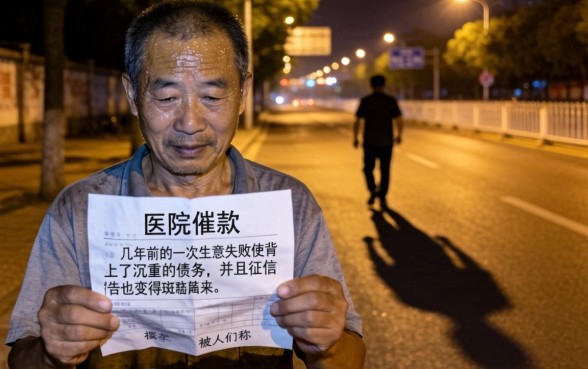 医院催款
几年前的一次生意失败使背
上了沉重的债务，并且征信
告也变得斑来。
被人们称